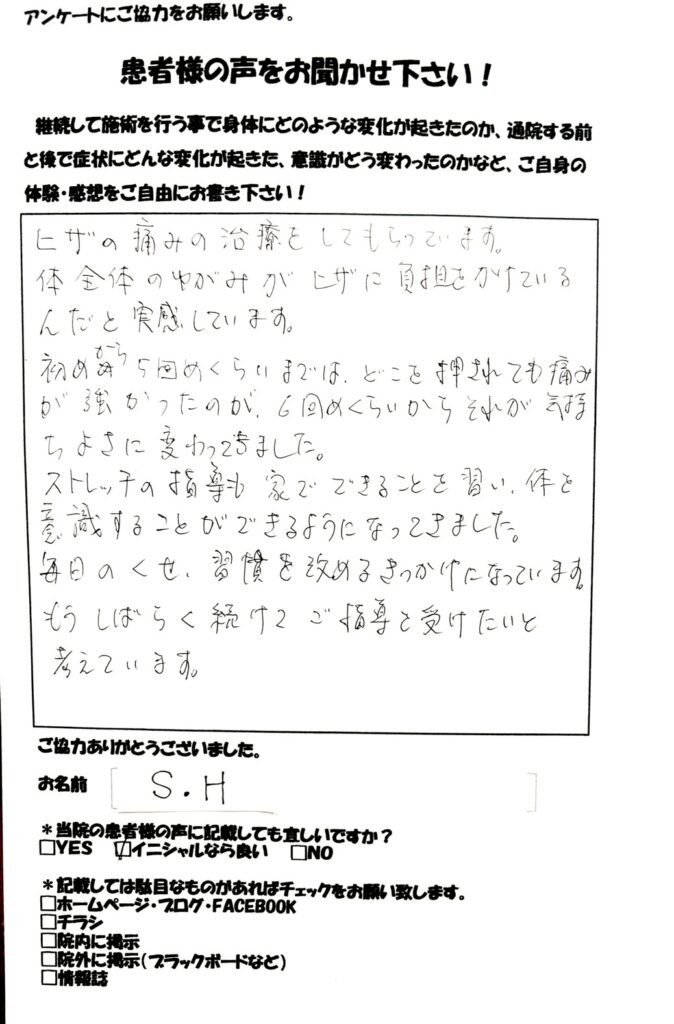 アンケートにご協力をお願いします。
患者様の声をお聞かせ下さい！
継続して施術を行う事で身体にどのような変化が起きたのか、通院する前
と後で症状にどんな変化が起きた、意識がどう変わったのかなど、ご自身の
体験・感想をご自由にお書き下さい！
ヒザの痛みの治療をしてもらっています。
体全体のゆがみがヒザに負担をかけている
んだと実感しています。
初めから5回めくらいまでは、どこを押されても痛み
が強かったのが、6回めくらいからそれが気持
ちよさに変わってきました。
ストレッチの指導も家でできることを習い、体を
意識することができるようになってきました。
毎日のくせ、習慣を改めるきっかけになっています。
もうしばらく続けてご指導を受けたいと
考えています。
ご協力ありがとうございました。
お名前 S.H
＊当院の患者様の声に記載しても宜しいですか？
□YES ☑イニシャルなら良い □NO
＊記載しては駄目なものがあればチェックをお願い致します。
□ホームページ・ブログ・FACEBOOK
□チラシ
□院内に掲示
□院外に掲示（ブラックボードなど）
□情報誌